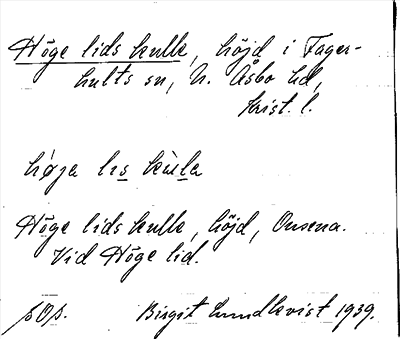 Höge lids kulle, höjd i Fager-
hults sn, N. Åsbo hd,
Krist. l.
høga les kùla
Höge lids kulle, höjd, Ousena.
Vid Höge lid.
Birgit Lundkvist 1939.